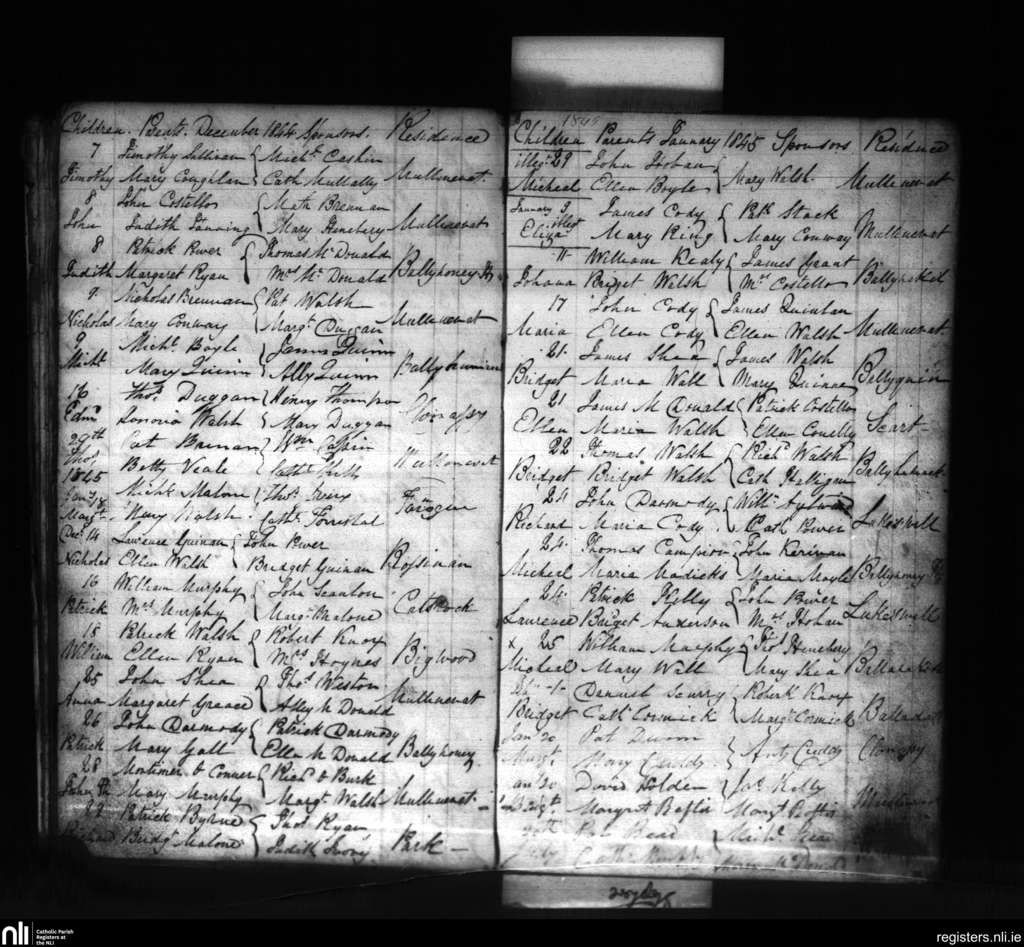 Children. Parts. December 1844 Sponsors. Residence
7 Timothy Sullivan { Michl. Cashin
Timothy Mary Coughlan { Cath Mullally Mullinevat.
8 John Costellos { Math Brennan
John Judith Fanning { Mary Henebery Mullinevat
8 Patrick Power { Thomas Mc Donald
Judith Margaret Ryan { Mrs Mc Donald Ballyhoney
9 Nicholas Brennan { Pat Walsh
Nicholas Mary Conway { Margt. Duggan Mullinevat
9 Michl. Boyle { James Quinn
Michl. Mary Quinn { Ally Quinn
16 Thos. Duggan { Henry Thompson
Edmd Honoria Walsh { Mary Duggan
29th Pat Brenan { Wm
Thos Betty Veale
1845
Michl. Malone
Margt. Mary Walsh Cathe. Forristal
Dec. 14 Lawrence Guinan { John Power
Nicholas Ellen Walsh { Bridget Guinan Rossinan
16 William Murphy { John Scanlon
Patrick Mrs. Murphy { Margt. Malone Catsrock
18 Patrick Walsh { Robert Knox
William Ellen Ryan { Mrs Hoynes Bigwood
25 John Shea { Thos. Weston
Anna Margaret Greace { Ally Mc Donald Mullinevat
26 John Darmody { Patrick Darmody
Patrick Mary Gall { Ellen Mc Donald Ballyhoney
28 Mortimer O Conner { Richd. Burk
Mary Murphy { Margt. Walsh Mullinevat
29 Patrick Byrne { Thos. Ryan
Richard Bridgt. Malone { Judith Park
1845
Children Parents January 1845 Sponsors Residence
illegt. 29 John Hoban
Micheal Ellen Boyle { Mary Walsh. Mullinevat
January 9 James Cody { Patk Stack
illegt Eliza Mary King { Mary Conway Mullinevat
11 William Kealy { James Grant
Johana Bridget Walsh { Mrs. Costellos
17 John Cody { James Quinlan
Maria Ellen Cody { Ellen Walsh Mullinevat
21. James Shea { James Walsh
Bridget Maria Wall { Mary Quinn Ballyquin
21 James Mc Donald { Patrick Costellos
Ellen Maria Walsh { Ellen Conelly Scart
22 Thomas Walsh { Richd. Walsh
Bridget Bridget Walsh { Cath Halligan
24 John Darmody { Willm. Aylward
Richard Maria Cody { Cath Power Lukeswell
24. Thomas Campion { John Kerivan
Micheal Maria Madicks { Maria Moyle Ballyhoney
24. Patrick Kelly { John Power
Laurence Briget Anderson { Mrs. Hohan Lukeswell
x 25 William Murphy { Henebery
Micheal Mary Wall { Mary Shea
Daniel Scurry { Robert Knox
Bridget Cath. Cormick { Margt Cormick
Jany 20 Pat
Margt. Mary Cuddy } Cuddy
Jany 20 David Holden { Jas. Kelly
Bridgt. Margret
29th
Judy Cath. Murphy
nli
Catholic Parish
Registers at
the NLI
registers.nli.ie